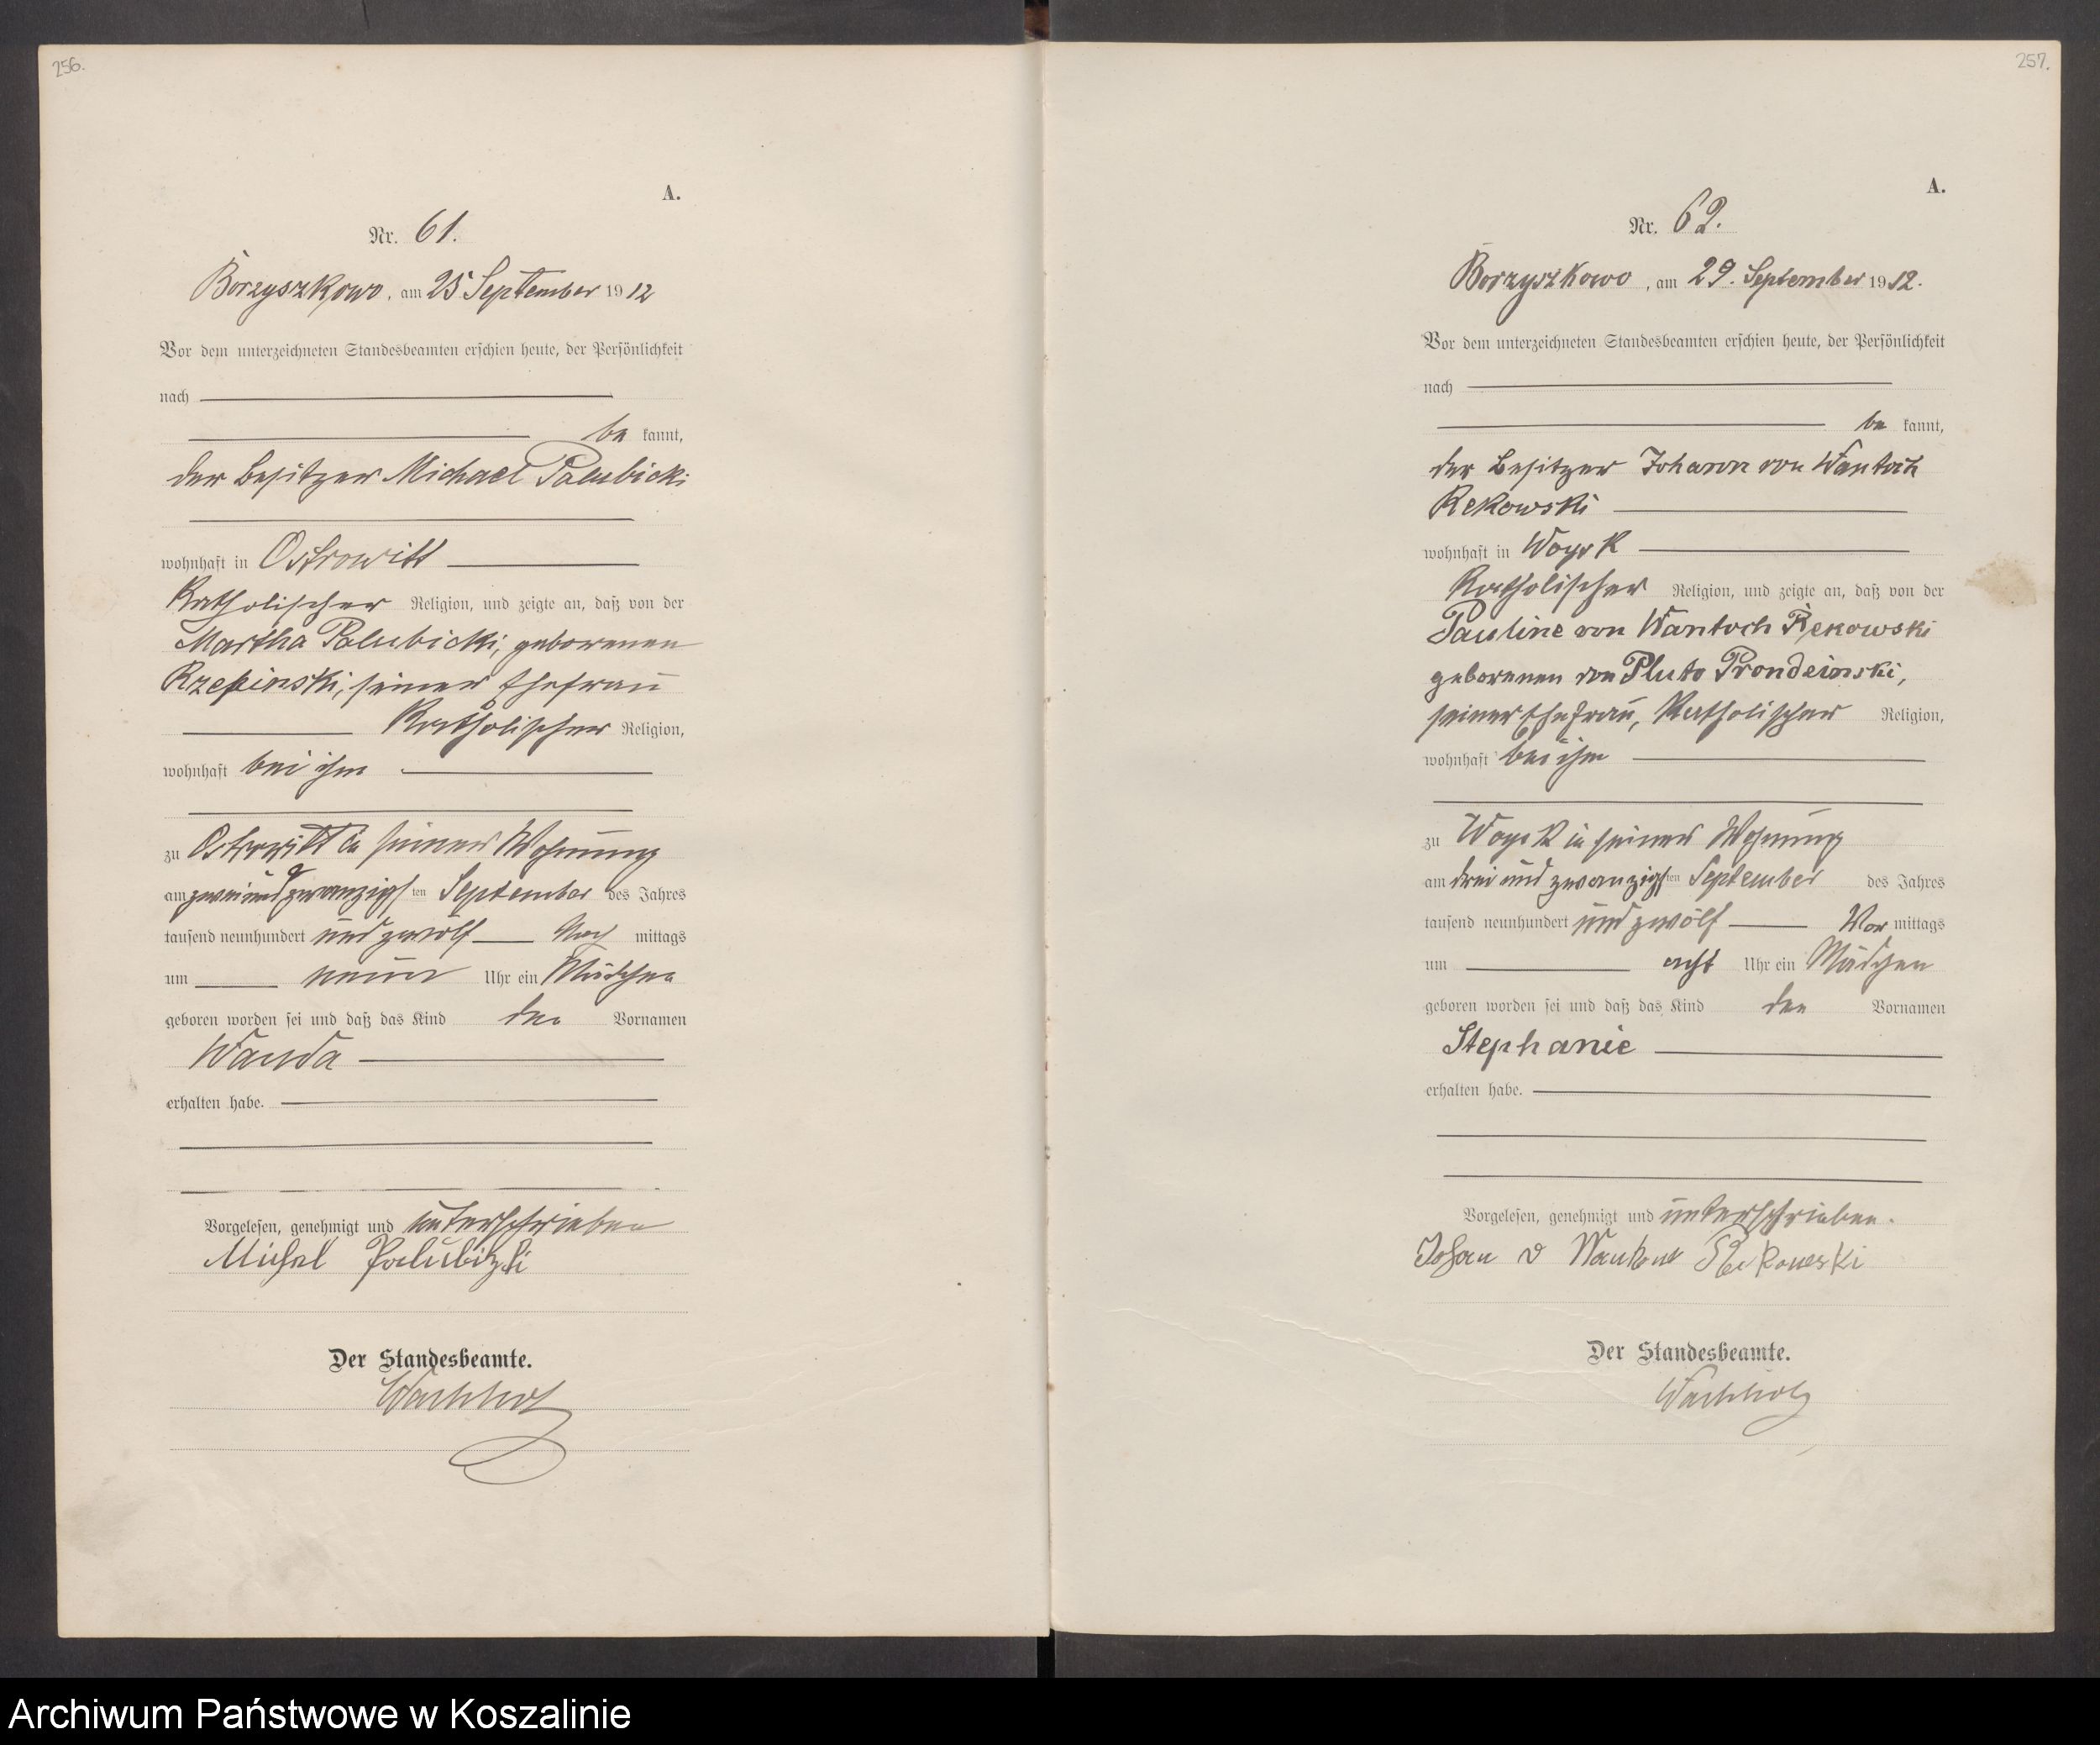 256.
A.
Nr. 61.
Borzyszkowo, am 25 September 1912
Vor dem unterzeichneten Standesbeamten erschien heute, der Persönlichkeit
nach
be kannt,
der Besitzer Michael Palubicki
wohnhaft in Ostrowitt
Katholischer Religion, und zeigte an, daß von der
Martha Palubicki, geborenen
Rzepinski, seiner Ehefrau
Katholischer Religion,
wohnhaft bei ihm
zu Ostrowitt in seiner Wohnung
am zweiundzwanzigsten September des Jahres
tausend neunhundert und zwölf Nach mittags
um neun Uhr ein Mädchen
geboren worden sei und daß das Kind den Vornamen
Wanda
erhalten habe.
Vorgelesen, genehmigt und unterschrieben
Michal Palubizki
Der Standesbeamte.
Wachholz
257.
A.
Nr. 62.
Borzyszkowo, am 29. September 1912.
Vor dem unterzeichneten Standesbeamten erschien heute, der Persönlichkeit
nach
be kannt,
der Besitzer Johann von Wantoch
Rekowski
wohnhaft in Woysk
Katholischer Religion, und zeigte an, daß von der
Pauline von Wantoch Rekowski
geborenen von Pluto Prondzinski,
seiner Ehefrau, Katholischer Religion,
wohnhaft bei ihm
zu Woysk in seiner Wohnung
am drei und zwanzigsten September des Jahres
tausend neunhundert und zwölf Vor mittags
um acht Uhr ein Mädchen
geboren worden sei und daß das Kind den Vornamen
Stephanie
erhalten habe.
Vorgelesen, genehmigt und unterschrieben.
Johan v Rekowski
Der Standesbeamte.
Wachholz
Archiwum Państwowe w Koszalinie